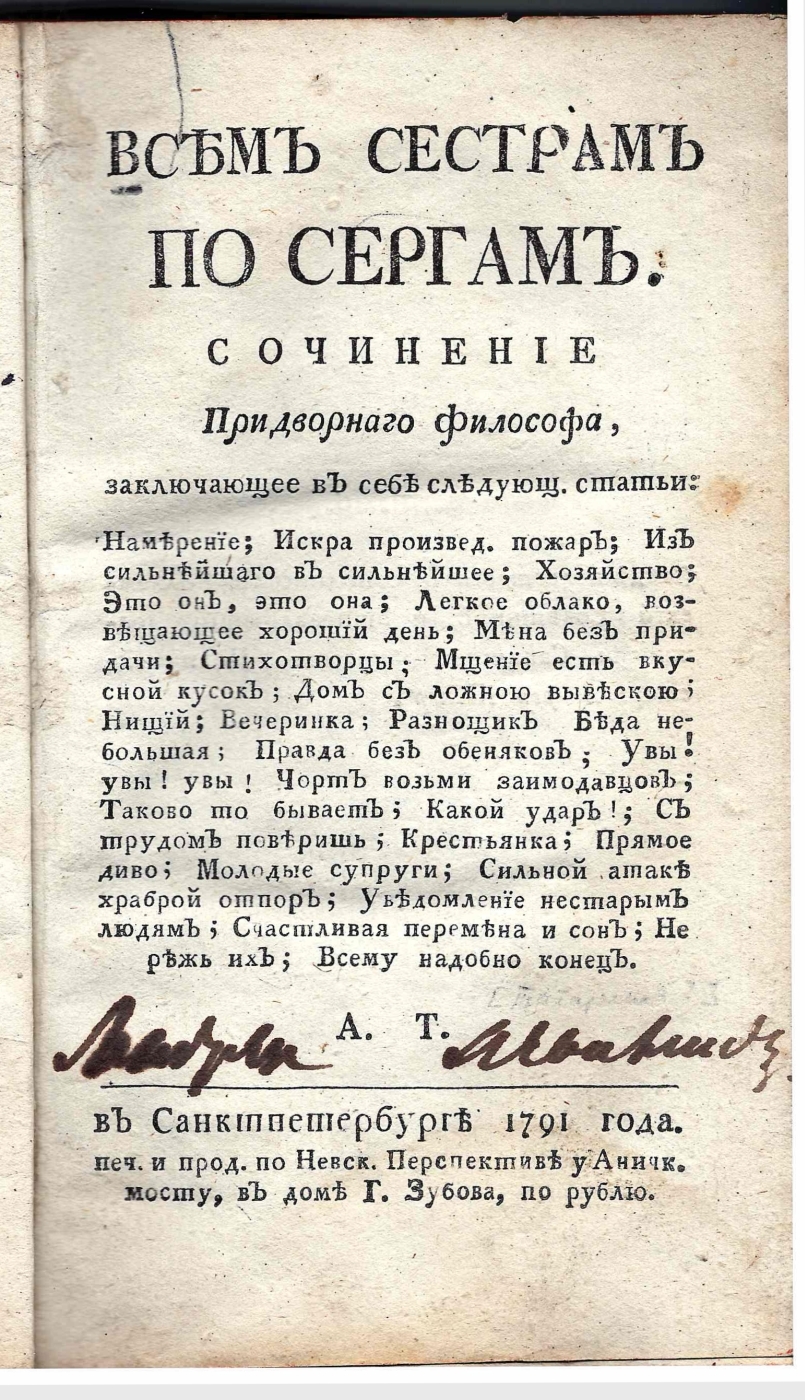 ВСѢМЪ СЕСТРАМЪ
ПО СЕРГАМЪ.
СОЧИНЕНІЕ
Придворнаго философа,
заключающее въ себѣ слѣдующ. статьи:
Намѣреніе; Искра произвед. пожаръ; Изъ
сильнѣйшаго въ сильнѣйшее; Хозяйство;
Это онъ, это она; Легкое облако, воз-
вѣщающее хорошій день; Мѣна безъ при-
дачи; Стихотворцы; Мщеніе есть вку-
сной кусокъ; Домъ съ ложною вывѣскою;
Нищій; Вечеринка; Разнощикъ Бѣда не-
большая; Правда безъ обеняковъ; Увы!
увы! увы! Чортъ возьми заимодавцовъ;
Таково то бываетъ; Какой ударъ!; Съ
трудомъ повѣришь; Крестьянка; Прямое
диво; Молодые супруги; Сильной атакѣ
храброй отпоръ; Увѣдомленіе нестарымъ
людямъ; Счастливая перемѣна и сонъ; Не
рѣжь ихъ; Всему надобно конецъ.
А. Т.
въ Санктпетербургѣ 1791 года.
печ. и прод. по Невск. Перспективѣ у Аничк.
мосту, въ домѣ Г. Зубова, по рублю.